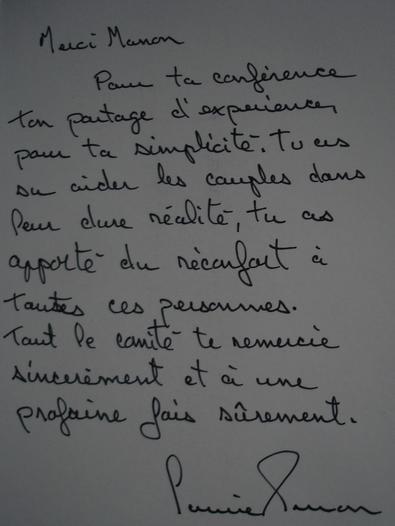 Merci Manon
Pour ta conférence
ton partage d'expérience,
pour ta simplicité. Tu as
su aider les couples dans
leur dure réalité, tu as
apporté du réconfort à
toutes ces personnes.
Tout le comité te remercie
sincèrement et à une
prochaine fois sûrement.